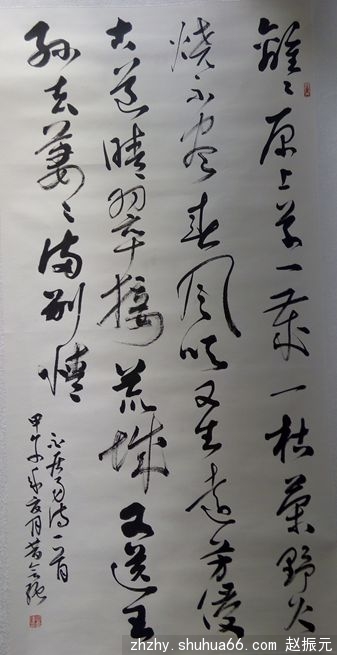 離〻原上草一歲一枯榮野火
燒不盡春風吹又生遠芳侵
古道晴翠接荒城又送王
孫去萋〻滿別情
居易诗一首
甲午年
zhzhy.shuhua66.com 赵振元